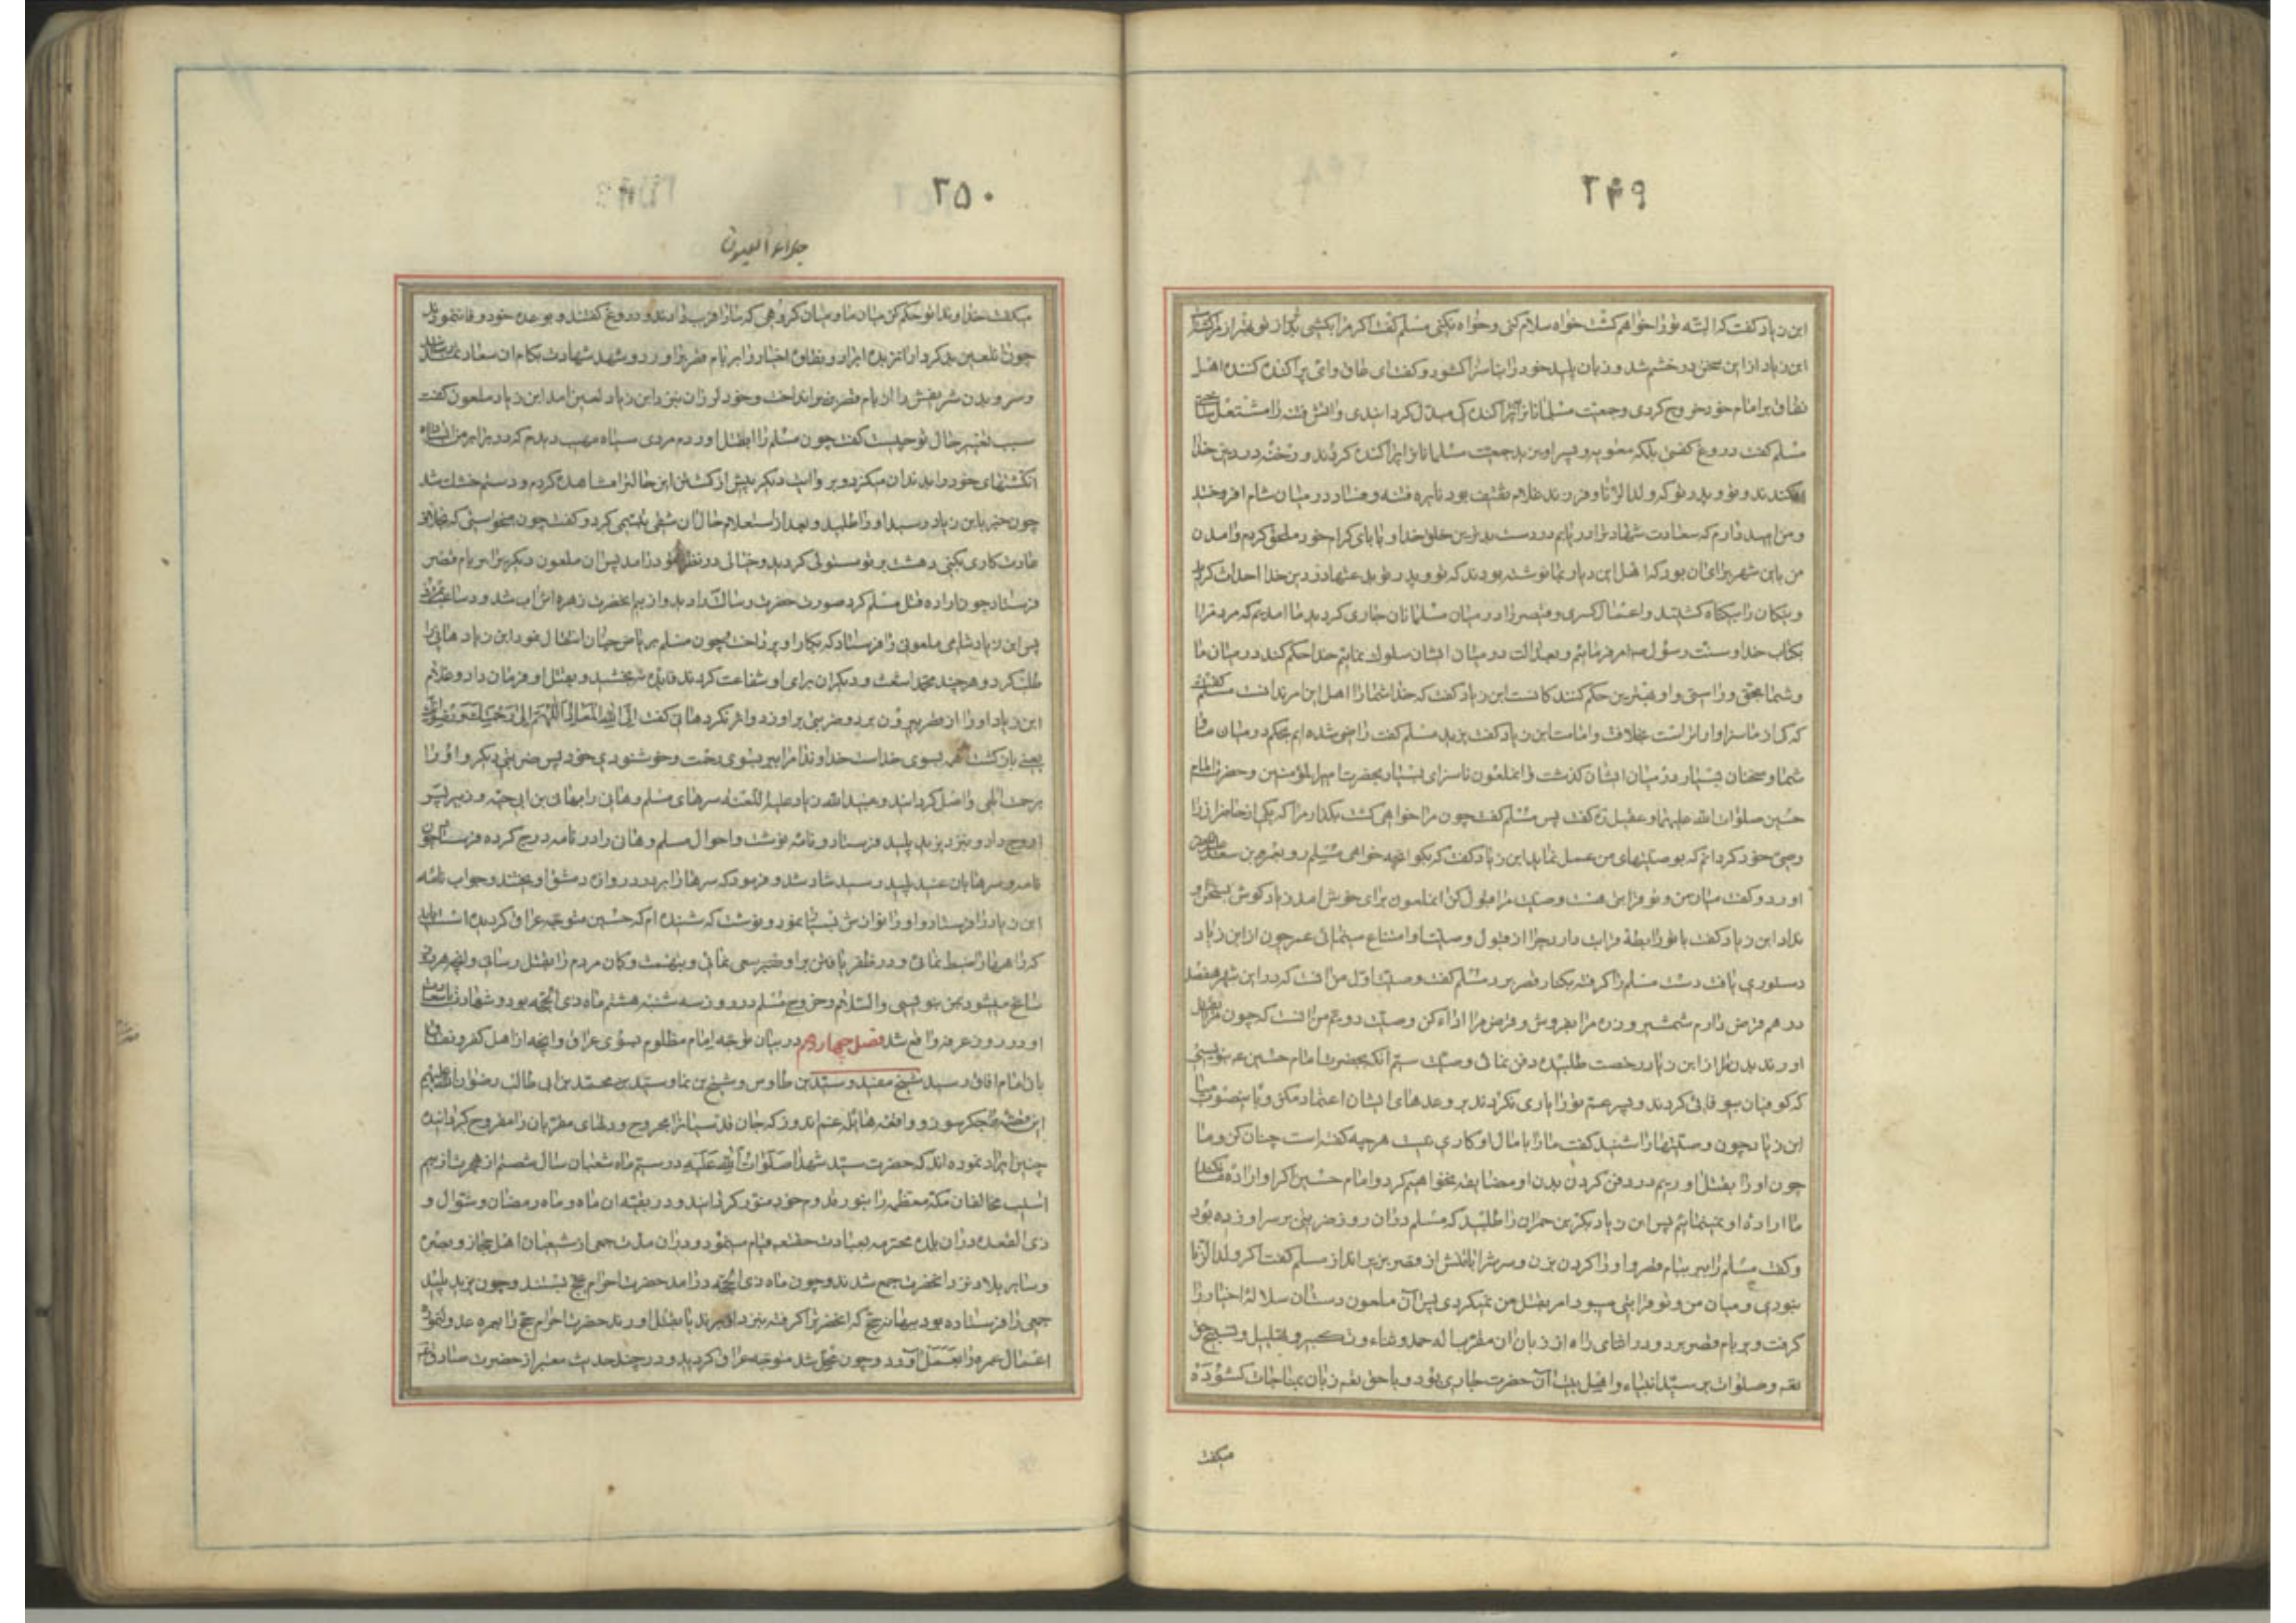 ۲۴۹
ابن زیاد گفت که البته تو را خواهم کشت خواه سلام کنی و خواه نکنی مسلم گفت اگر مرا بکشی بدتر از تو بهتر از مرا کشته
ابن زیاد از این سخن در خشم شد و زبان پلید خود را بناسزا کشود و گفت ای عاق وای پراکنده کننده اهل
نفاق بر امام خود خروج کردی و جمعیت مسلمانان را پراکندکی مبدل کردانیدی و اتش فتنه را مشتعل
مسلم گفت دروغ گفتی بلکه معویه و پسر او یزید جمعیت مسلمانان را پراکنده کردند و رخنه در دین خدا
افکندند و تو و پدر تو که ولد الزنا و فرزند غلام ثقیف بود نایره فتنه و فساد در میان شام افروختید
و من امید دارم که سعادت شهادت را دریابم در دست بدترین خلق خدا و با بای کرام خود ملحق کردم و امدن
من باین شهر برای ان بود که اهل این دیار بما نوشته بودند که تو و پدر تو بدعتها در دین خدا احداث کردید
و نیکان را بیکناه کشتید و اعمال کسری و قیصر را در میان مسلمانان جاری کردید ما امدیم که مردم را
بکتاب خدا و سنت رسول امر فرمائیم و بعدالت در میان ایشان سلوک نمائیم خدا حکم کند در میان ما
و شما بحق و راستی و او بهترین حکم کنندکانست ابن زیاد گفت که خدا شما را اهل این امر ندانست مسلم گفت
که کی از ما سزاوارتر است بخلافت و امامت ابن زیاد گفت یزید مسلم گفت راضی شده ایم بحکم خدا در میان ما و
شما و سخنان بسیار در میان ایشان گذشت و انملعون ناسزای بسیار بحضرت امیرالمؤمنین و حضرت امام
حسین صلوات الله علیهما و عقیل گفت پس مسلم گفت چون مرا خواهی کشت بکذار مرا که یکی از حاضران را
وصی خود کردانم که بوصیتهای من عمل نماید ابن زیاد گفت که بکو انچه خواهی مسلم رو بعمر بن سعد
اورد و گفت میان من و تو قرابتی هست وصیت مرا قبول کن انملعون برای خوش امد ابن زیاد کوش بسخن او
نداد ابن زیاد گفت با تو رابطه قرابت دارد چرا از قبول وصیت او امتناع مینمائی عمر چون از ابن زیاد
دستوری یافت دست مسلم را کرفته بکنار قصر برد مسلم گفت وصیت اول من انست که در این شهر هفتصد
درهم قرض دارم شمشیر و زره مرا بفروش و قرض مرا ادا کن وصیت دویم من انست که چون مرا بقتل
اورند بدن مرا از ابن زیاد رخصت طلبیده دفن نمائی وصیت سیم انکه بحضرت امام حسین ع بنویسی
که کوفیان بیوفائی کردند و پسر عم تو را یاری نکردند بر وعدهای ایشان اعتماد مکن و باینصوب میا
ابن زیاد چون وصیتها را شنید گفت ما را با مال او کاری نیست هر چه گفته است چنان کن و ما
چون او را بقتل اوریم در دفن کردن بدن او مضایقه نخواهیم کرد و امام حسین اکر اراده ما نکند
ما اراده او نمینمائیم پس ابن زیاد بکر بن حمران را طلبید که مسلم در ان روز ضربتی بر سر او زده بود
و گفت مسلم را ببر ببام قصر و او را کردن بزن و سرش را با تنش از قصر بزیر انداز مسلم گفت اکر ولد الزنا
نبودی و میان من و تو قرابتی میبود امر بقتل من نمیکردی پس آن ملعون دست ان سلاله اخیار را
کرفت و بر بام قصر برد و در اثنای راه از زبان ان مقرب اله حمد و ثناء و تکبیر و تهلیل و تسبیح حق
تعه و صلوات بر سید انبیاء و اهل بیت آن حضرت جاری بود و با حق تعه زبان بمناجات کشوده
میکفت
۲۵۰
جلاء العیون
میکفت خداوندا تو حکم کن میان ما و میان کروهی که ما را فریب دادند و دروغ گفتند و بوعده خود وفا ننمودند
چون ان لعین بدکردار ان نزیده ابرار و نقاوه اخیار را بر بام قصر براورد و شهد شهادت بکام ان سعادتمند رسانید
و سر و بدن شریفش را از بام قصر بزیر انداخت و خود لرزان بنزد ابن زیاد لعین امد ابن زیاد ملعون گفت
سبب تغییر حال تو چیست گفت چون مسلم را بقتل اوردم مردی سیاه مهیب دیدم که در برابر من ایستاده
انکشتهای خود را بدندان میکزد و بروایت دیکر پیش از کشتن این حالترا مشاهده کردم و دستم خشک شد
چون خبر بابن زیاد رسید او را طلبید و بعد از استعلام حال ان شقی تبسمی کرد و گفت چون میخواستی که بخلاف
عادت کاری بکنی دهشت بر تو مستولی کردید و خیالی در نظر تو درامد پس ان ملعون دیکریرا بر بام قصر
فرستاد چون اراده قتل مسلم کرد صورت حضرت رسالت را دید و از بیم انحضرت زهره اش آب شد و در ساعت بمرد
پس ابن زیاد شامی ملعونی را فرستاد که بکار او پرداخت چون مسلم بریاض جنان انتقال نمود ابن زیاد هانی را
طلب کرد و هر چند محمد اشعث و دیکران برای او شفاعت کردند فایده نبخشید و بقتل او فرمان داد و غلام
ابن زیاد او را از قصر بیرون برد و ضربتی بر او زد و اثر نکرد هانی گفت الی الله المعاد اللهم الی رحمتک و رضوانک
یعنی بازکشت همه بسوی خداست خداوندا مرا ببر بسوی رحمت و خوشنودی خود پس ضربتی دیکر زد و او را
برحمت الهی واصل کردانید و عبیدالله زیاد علیه اللعنه سرهای مسلم و هانی را بهانی بن ابی حیه و زبیر پسر
اروح داد و بنزد یزید پلید فرستاد و نامه نوشت و احوال مسلم و هانی را در نامه درج کرده فرستاد چون
نامه و سرها بان عنید پلید رسید شاد شد و فرمود که سرها را بر در دروازه دمشق اویختند و جواب نامه
ابن زیاد را فرستاد و او را نوازش بسیار نمود و نوشت که شنیده ام که حسین متوجه عراق کردیده است باید
که راهها را ضبط نمائی و در ظفر یافتن بر او سعی نمائی و بتهمت و کمان مردم را بقتل رسانی و انچه هر روز
سانح میشود بمن بنویسی والسلام و خروج مسلم در روز سه شنبه هشتم ماه ذی الحجه بود و شهادت
او در روز عرفه واقع شد فصل چهارم در بیان توجه امام مظلوم بسوی عراق و انچه از اهل کفر و نفاق
بان امام افاق رسید شیخ مفید و سید بن طاوس و شیخ بن نما و سید بن محمد بن ابی طالب رضوان الله علیهم
این قصه جگرسوز و واقعه هائله غم اندوز که جان قدسیانرا مجروح و دلهای مقربان را مقروح کردانیده
چنین ایراد نموده اند که حضرت سید شهدا صلوات الله علیه در سیم ماه شعبان سال شصتم از هجرت از بیم
اسیب مخالفان مکه معظمه را بنور قدوم خود منور کردانید و در بقیه ان ماه و ماه رمضان و شوال و
ذی القعده در ان بلده محترمه بعبادت حقتعه قیام مینمود و در ان مدت جمعی از شیعیان اهل حجاز و بصره
و سایر بلاد نزد انحضرت جمع شدند و چون ماه ذی الحجه درامد حضرت احرام حج بستند و چون یزید پلید
جمعی را فرستاده بود ببهانه حج که انحضرترا کرفته بنزد او برند یا بقتل اورند حضرت احرام حج را بعمره عدول نمود
اعمال عمره را بعمل آورد و چون محل شد متوجه عراق کردید و در چند حدیث معتبر از حضرت صادق